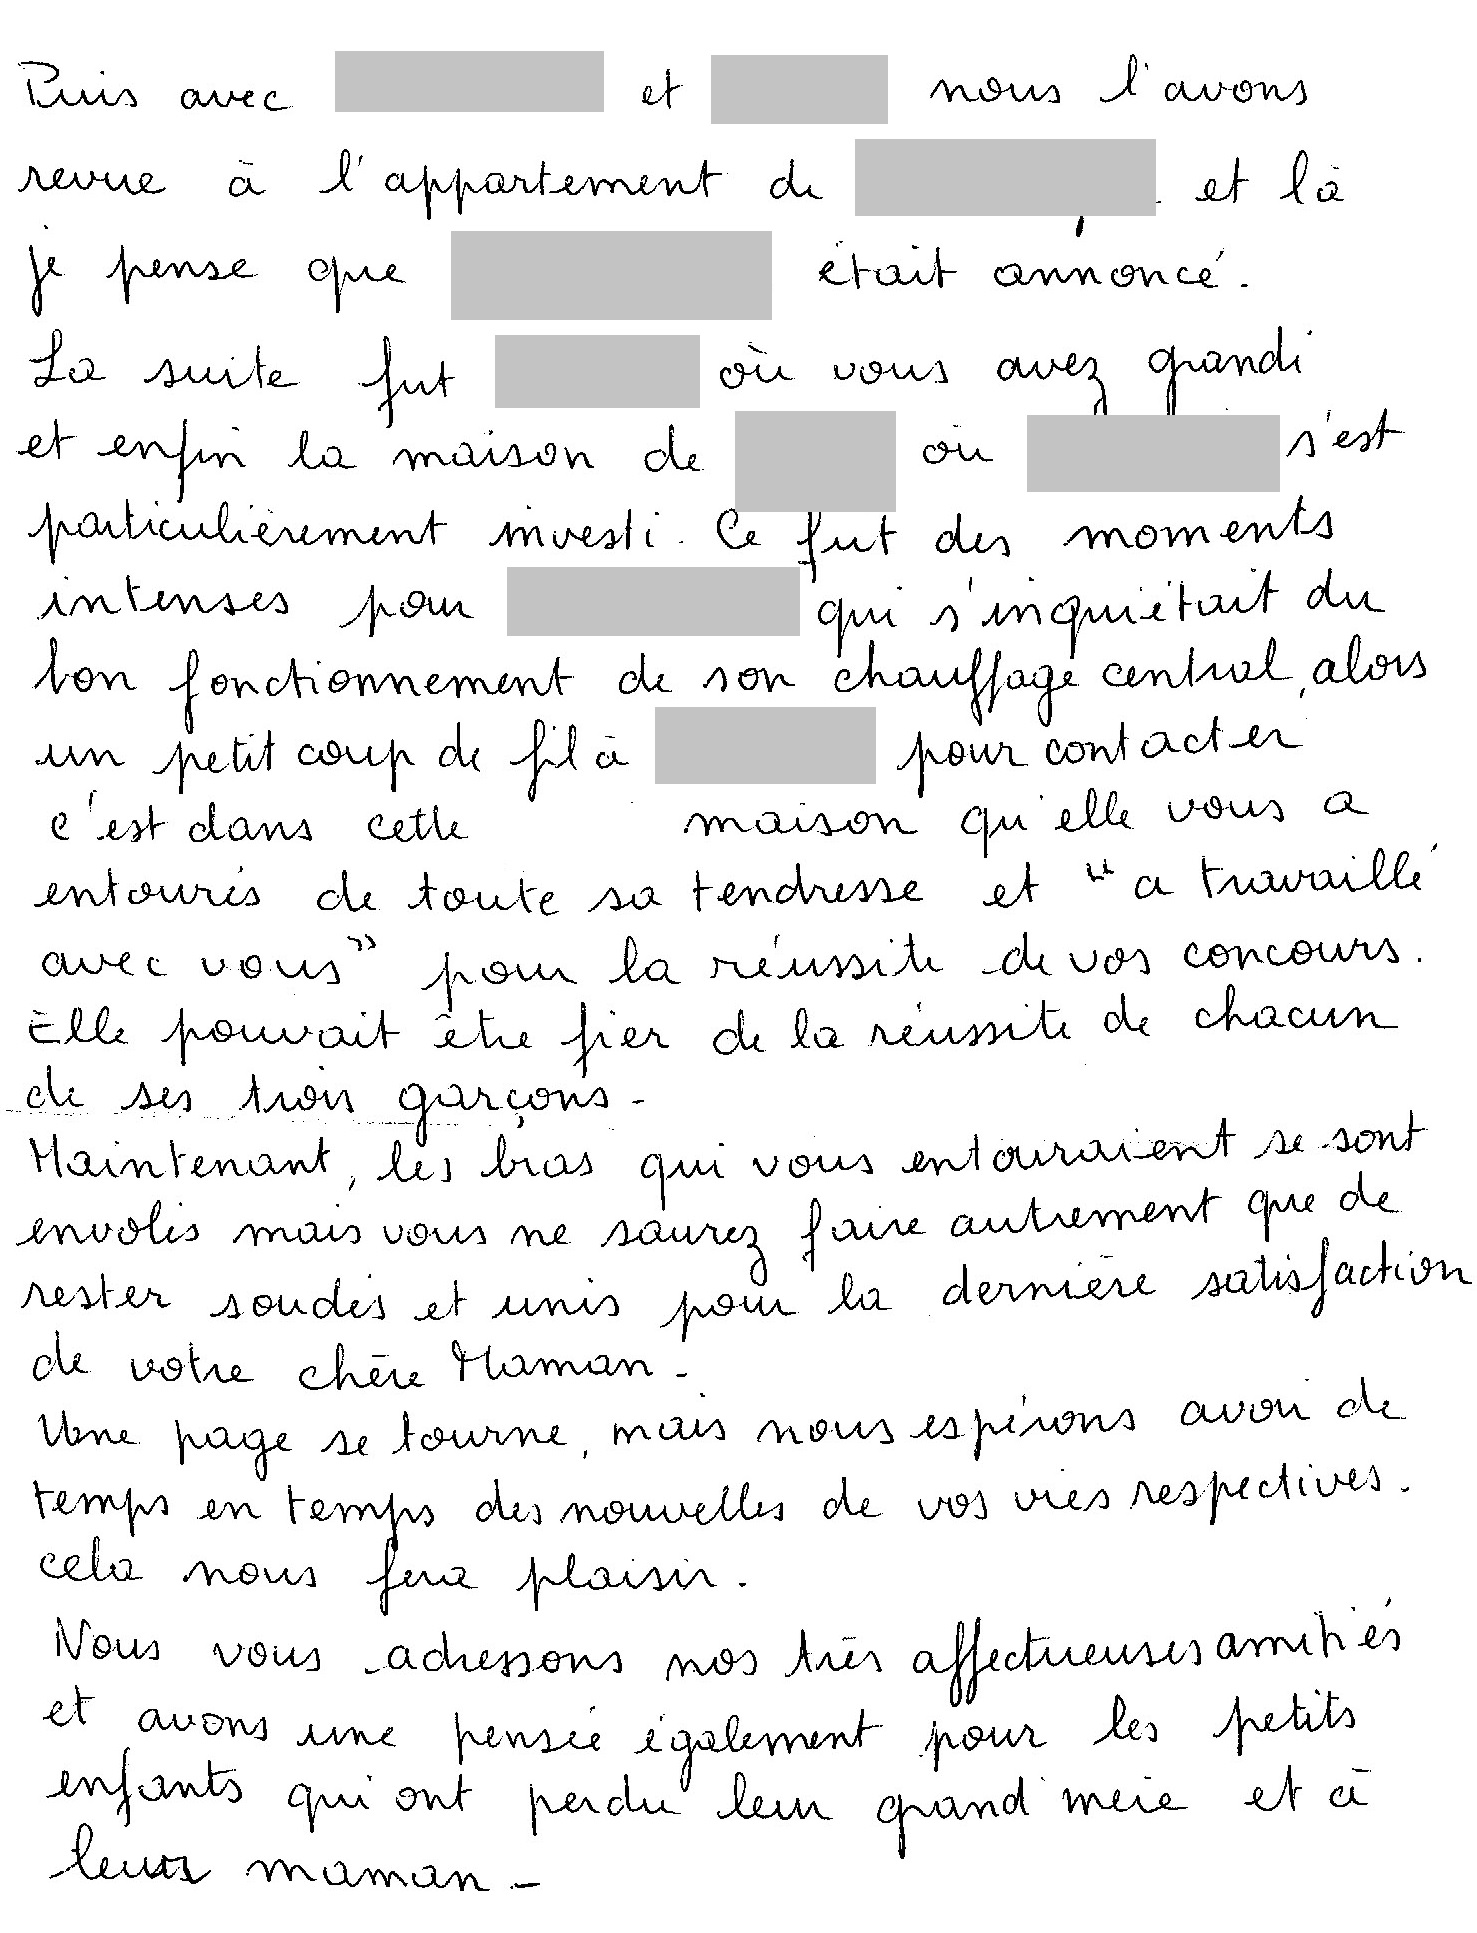 Puis avec et nous l'avons
revue à l'appartement de et là
je pense que était annoncé.
La suite fut où vous avez grandi
et enfin la maison de où s'est
particulièrement investi. Ce fut des moments
intenses pour qui s'inquiétait du
bon fonctionnement de son chauffage central, alors
un petit coup de fil à pour contacter
c'est dans cette maison qu'elle vous a
entourés de toute sa tendresse et "a travaillé
avec vous" pour la réussite de vos concours.
Elle pouvait être fier de la réussite de chacun
de ses trois garçons -
Maintenant, les bras qui vous entouraient se sont
envolés mais vous ne saurez faire autrement que de
rester soudés et unis pour la dernière satisfaction
de votre chère Maman -
Une page se tourne, mais nous espérons avoir de
temps en temps des nouvelles de vos vies respectives.
cela nous fera plaisir.
Nous vous adressons nos très affectueuses amitiés
et avons une pensée également pour les petits
enfants qui ont perdu leur grand'mère et à
leurs maman -